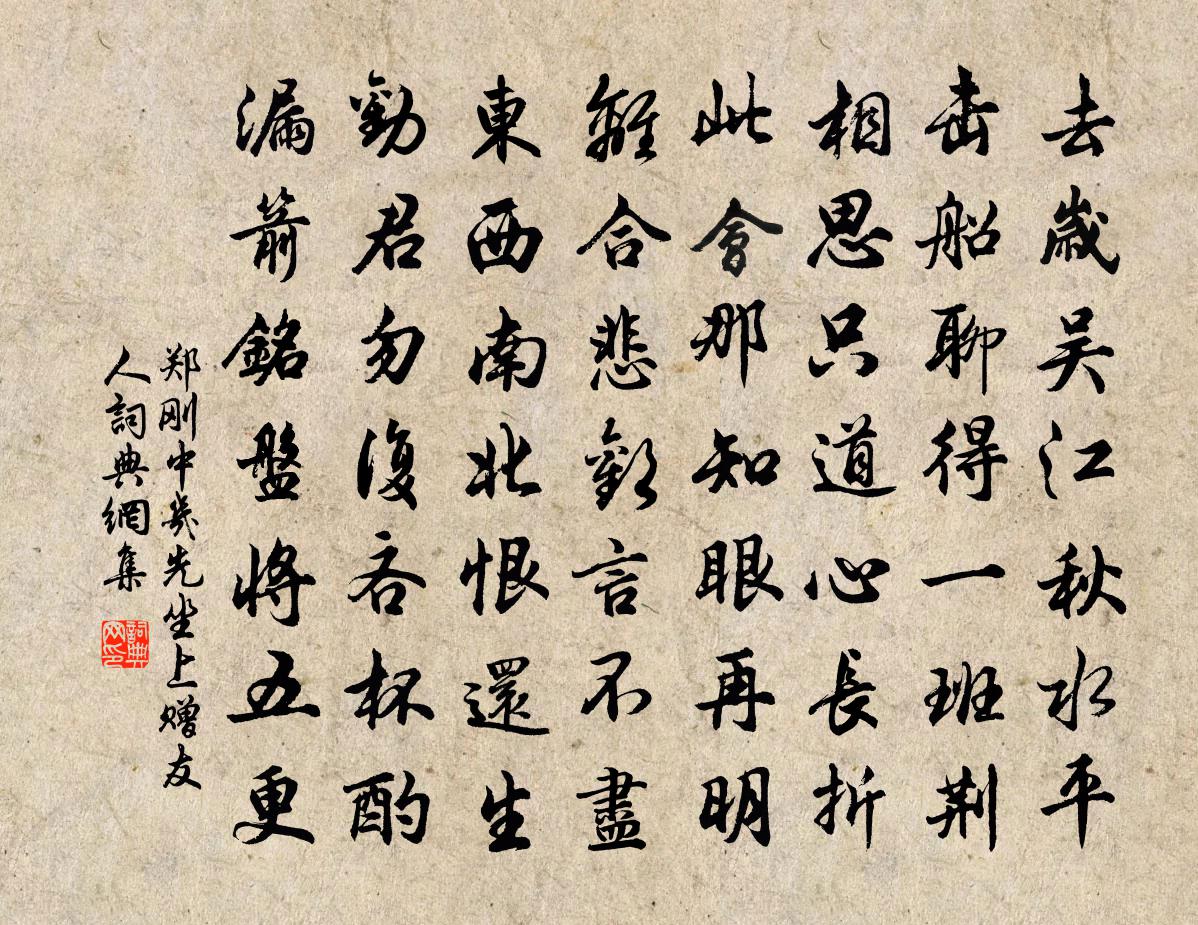 去歲吴江秋水平
击船聊得一班荆
相思只道心長折
此會那知眼再明
離合悲歡言不盡
東西南北恨還生
勸君勿復吝杯酌
漏箭銘盤將五更
郑刚中幾先坐上赠友
人詞典網集
詞典
网印